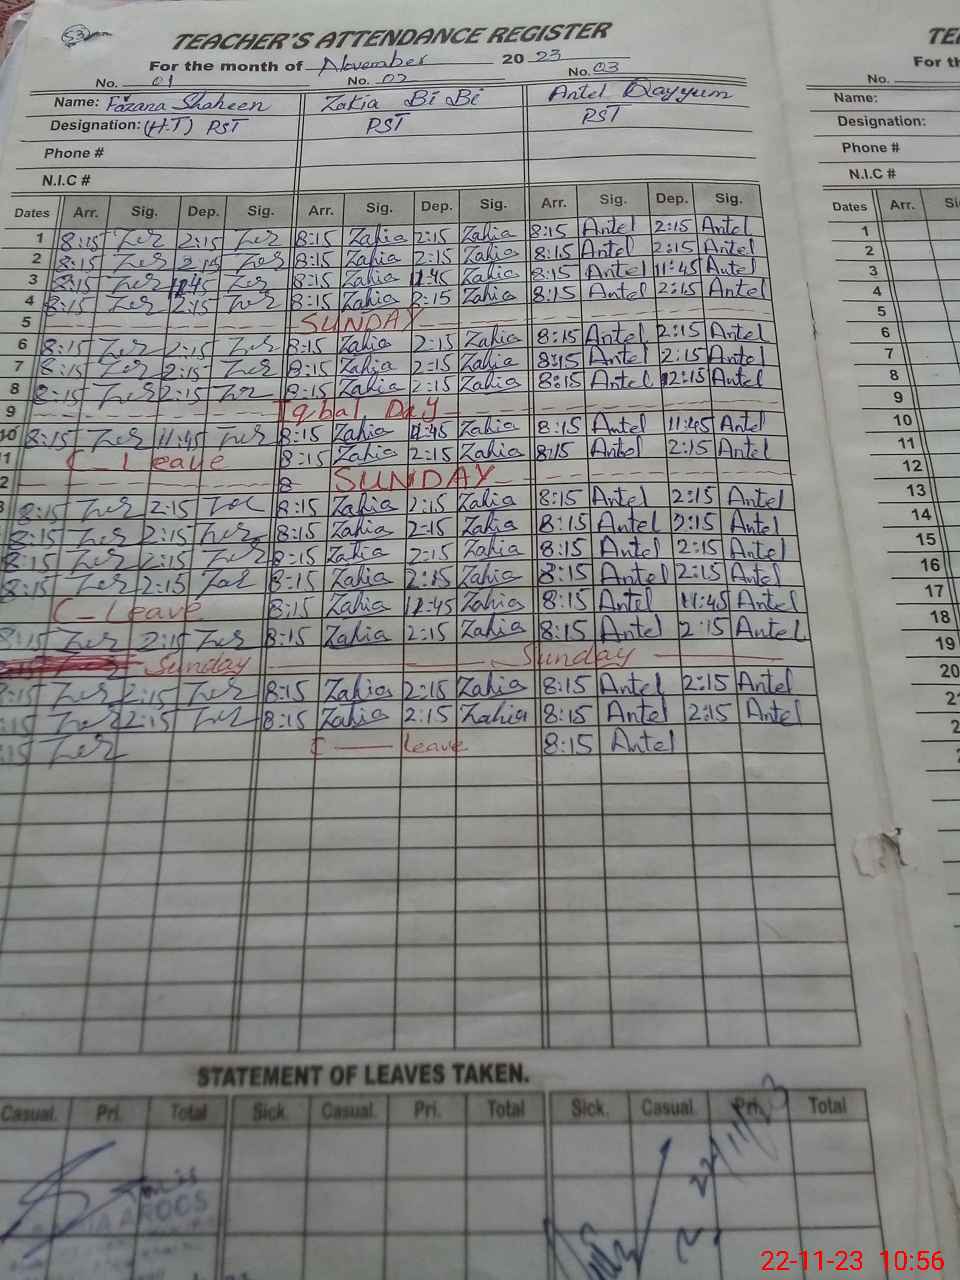 53
TEACHER'S ATTENDANCE REGISTER
For the month of November 2023
No. 01 No. 02 No. 03
Name: Fozana Shaheen Zakia Bi Bi Antel Qayyum
Designation: (H.T) PST PST PST
Phone #
N.I.C #
Dates Arr. Sig. Dep. Sig. Arr. Sig. Dep. Sig. Arr. Sig. Dep. Sig.
1 8:15 2:15 8:15 Zakia 2:15 Zakia 8:15 Antel 2:15 Antel
2 8:15 2:15 8:15 Zakia 2:15 Zakia 8:15 Antel 2:15 Antel
3 8:15 11:45 8:15 Zakia 11:45 Zakia 8:15 Antel 11:45 Antel
4 8:15 2:15 8:15 Zakia 2:15 Zakia 8:15 Antel 2:15 Antel
5 SUNDAY
6 8:15 2:15 8:15 Zakia 2:15 Zakia 8:15 Antel 2:15 Antel
7 8:15 2:15 8:15 Zakia 2:15 Zakia 8:15 Antel 2:15 Antel
8 8:15 2:15 8:15 Zakia 2:15 Zakia 8:15 Antel 2:15 Antel
9 Iqbal Day
10 8:15 11:45 8:15 Zakia 11:45 Zakia 8:15 Antel 11:45 Antel
11 C-Leave 8:15 Zakia 2:15 Zakia 8:15 Antel 2:15 Antel
2 8 SUNDAY
3 8:15 2:15 8:15 Zakia 2:15 Zakia 8:15 Antel 2:15 Antel
8:15 2:15 8:15 Zakia 2:15 Zakia 8:15 Antel 2:15 Antel
8:15 2:15 8:15 Zakia 2:15 Zakia 8:15 Antel 2:15 Antel
8:15 2:15 8:15 Zakia 2:15 Zakia 8:15 Antel 2:15 Antel
C-Leave 8:15 Zakia 11:45 Zakia 8:15 Antel 11:45 Antel
8:15 2:15 8:15 Zakia 2:15 Zakia 8:15 Antel 2:15 Antel
Sunday Sunday
:15 2:15 8:15 Zakia 2:15 Zakia 8:15 Antel 2:15 Antel
:15 2:15 8:15 Zakia 2:15 Zakia 8:15 Antel 2:15 Antel
:15 C leave 8:15 Antel
STATEMENT OF LEAVES TAKEN.
Casual. Pri. Total Sick. Casual. Pri. Total Sick. Casual. Pri. Total
AROOS
22/11/23
TE
For th
No.
Name:
Designation:
Phone #
N.I.C #
Dates Arr. Si
1
2
3
4
5
6
7
8
9
10
11
12
13
14
15
16
17
18
19
20
2
2
22-11-23 10:56